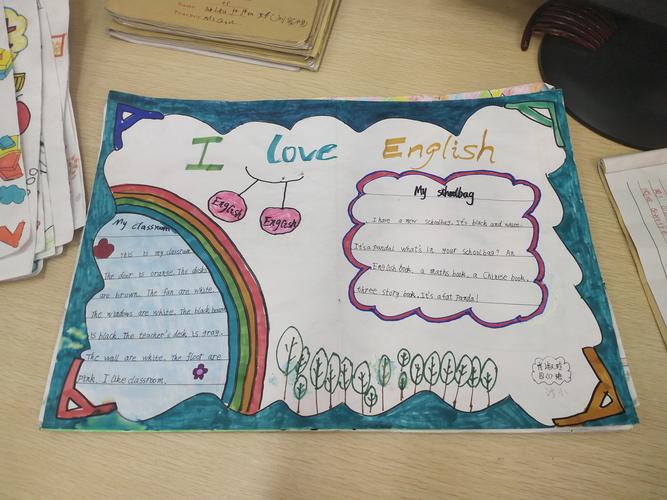 I Love English
English
English
My classroom
This is my classroom.
The door is orange. The desks
are brown. The fan are white.
The windows are white. The black board
is black. The teacher's desk is gray.
The wall are white. The floor are
pink. I like classroom.
My schoolbag
I have a new schoolbag. It's black and white.
It's a panda! what's in your schoolbag? An
English book, a maths book, a Chinese book,
three story book. It's a fat Panda!